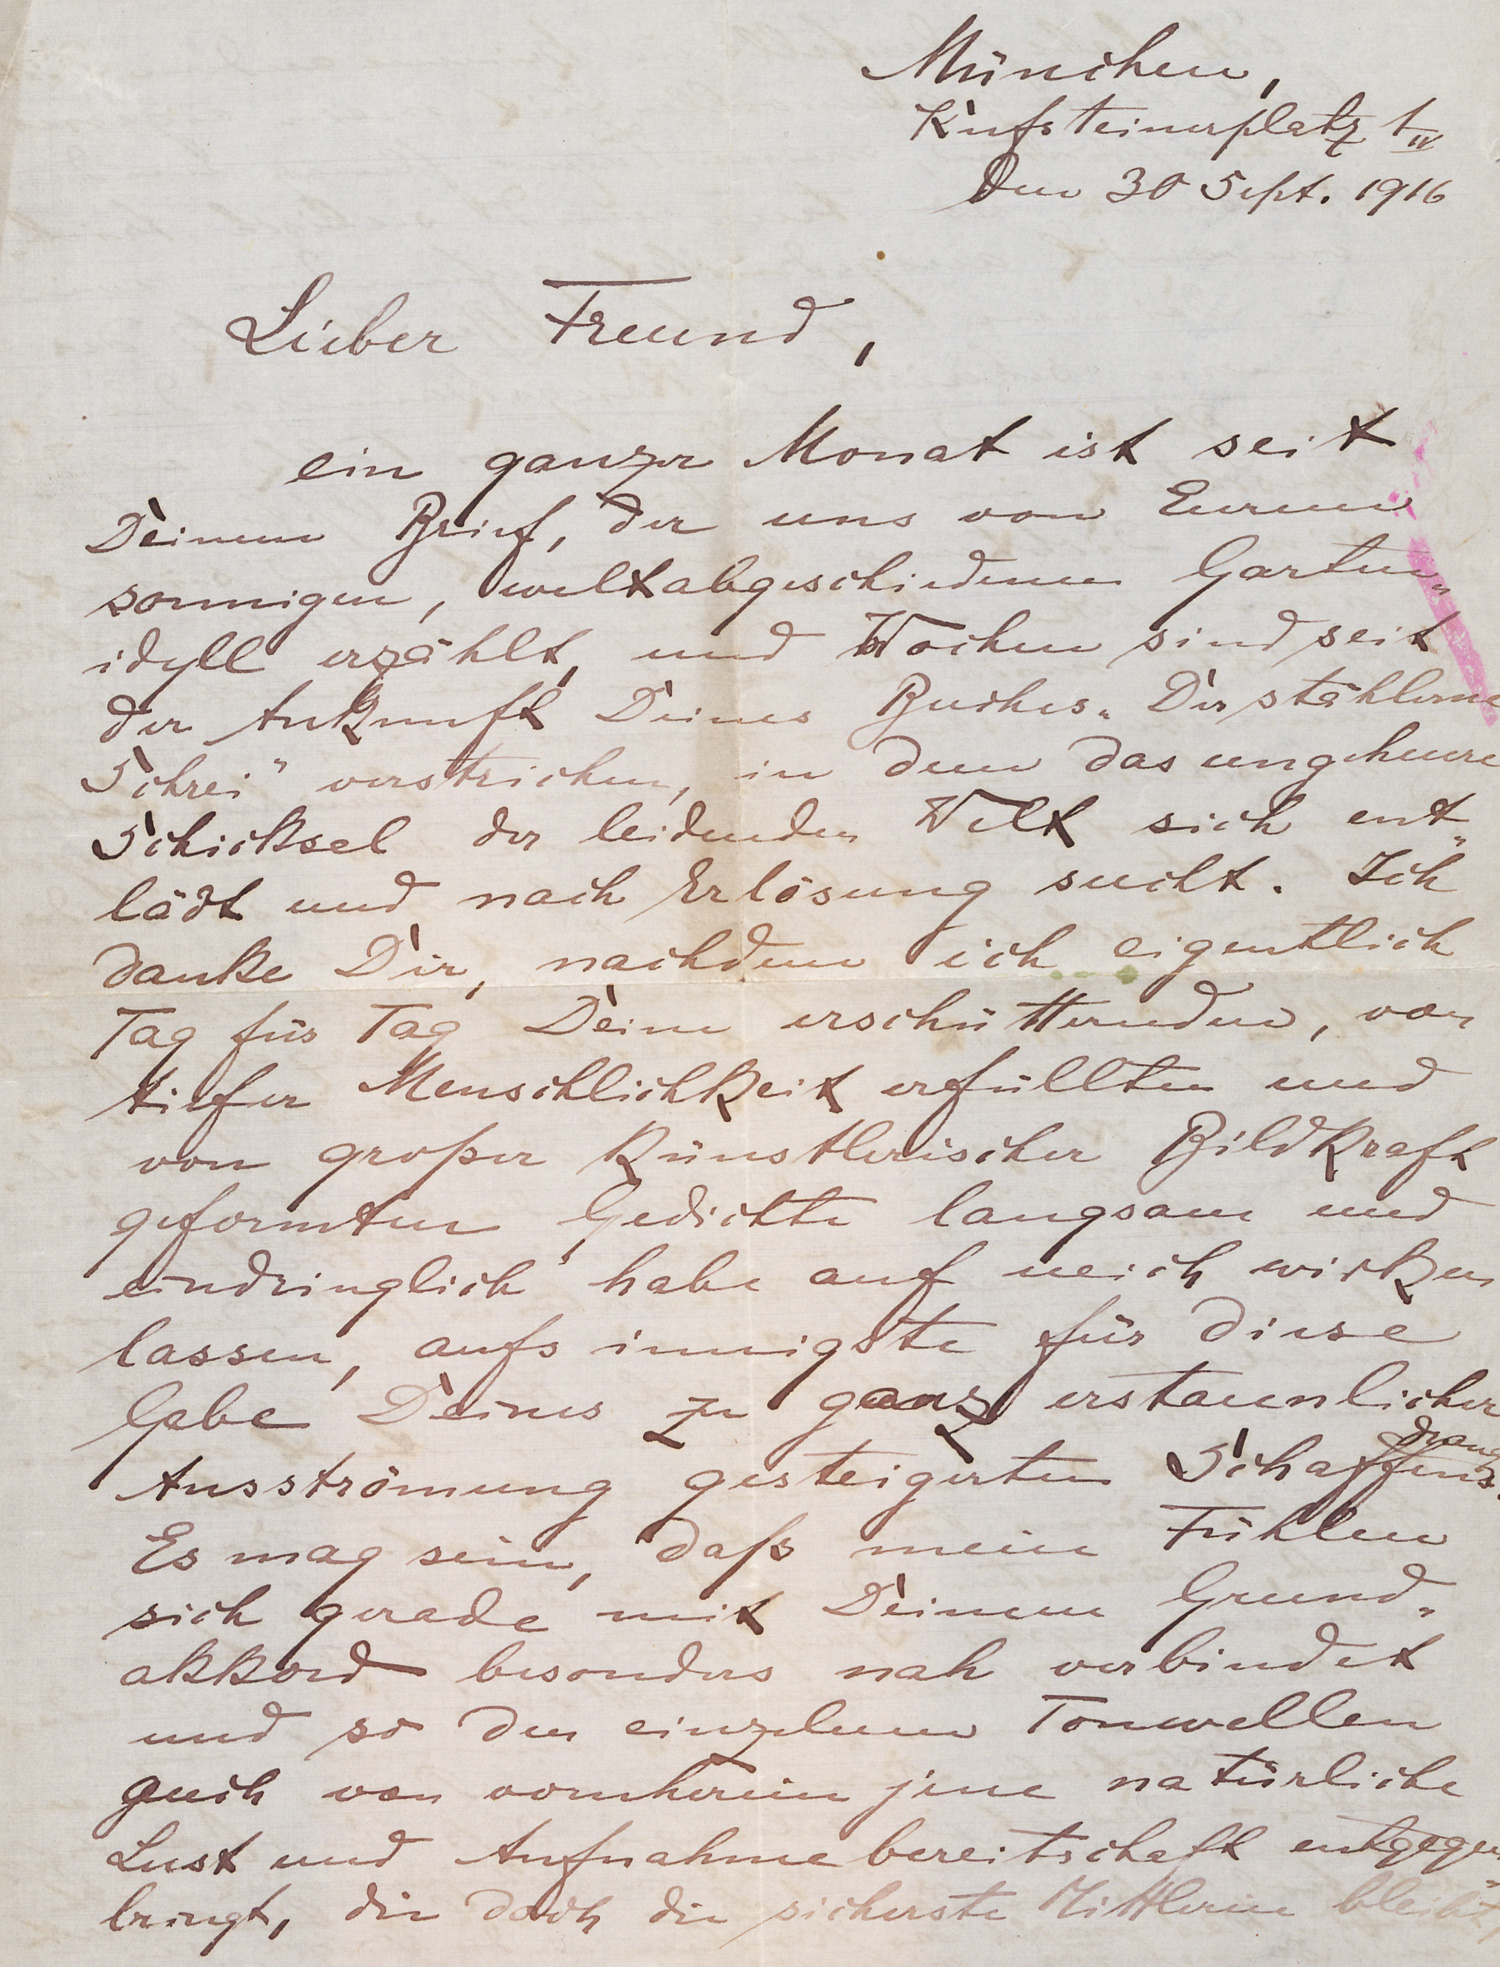 München,
Kufsteinerplatz 1 IV
den 30 Sept. 1916
Lieber Freund,
ein ganzer Monat ist seit
Deinem Brief, der uns von Eurem
sonnigen, weltabgeschiedenen Garten„
idyll erzählt, und Wochen sind seit
der Ankunft Deines Buches „Der stählerne
Schrei" verstrichen, in dem das ungeheure
Schicksal der leidenden Welt sich ent„
lädt und nach Erlösung sucht. Ich
danke Dir, nachdem ich eigentlich
Tag für Tag Deine erschütternden, von
tiefer Menschlichkeit erfüllten und
von großer künstlerischer Bildkraft
geformten Gedichte langsam und
eindringlich habe auf mich wirken
lassen, aufs innigste für diese
Gabe Deines zu ganz erstaunlicher
Ausströmung gesteigerten Schaffensdrangs.
Es mag sein, daß mein Fühlen
sich gerade mit Deinem Grund„
akkord besonders nah verbindet
und so den einzelnen Tonwellen
auch von vornherein jene natürliche
Lust und Aufnahmebereitschaft entgegen„
bringt, die doch die sicherste Mittlerin bleibt,